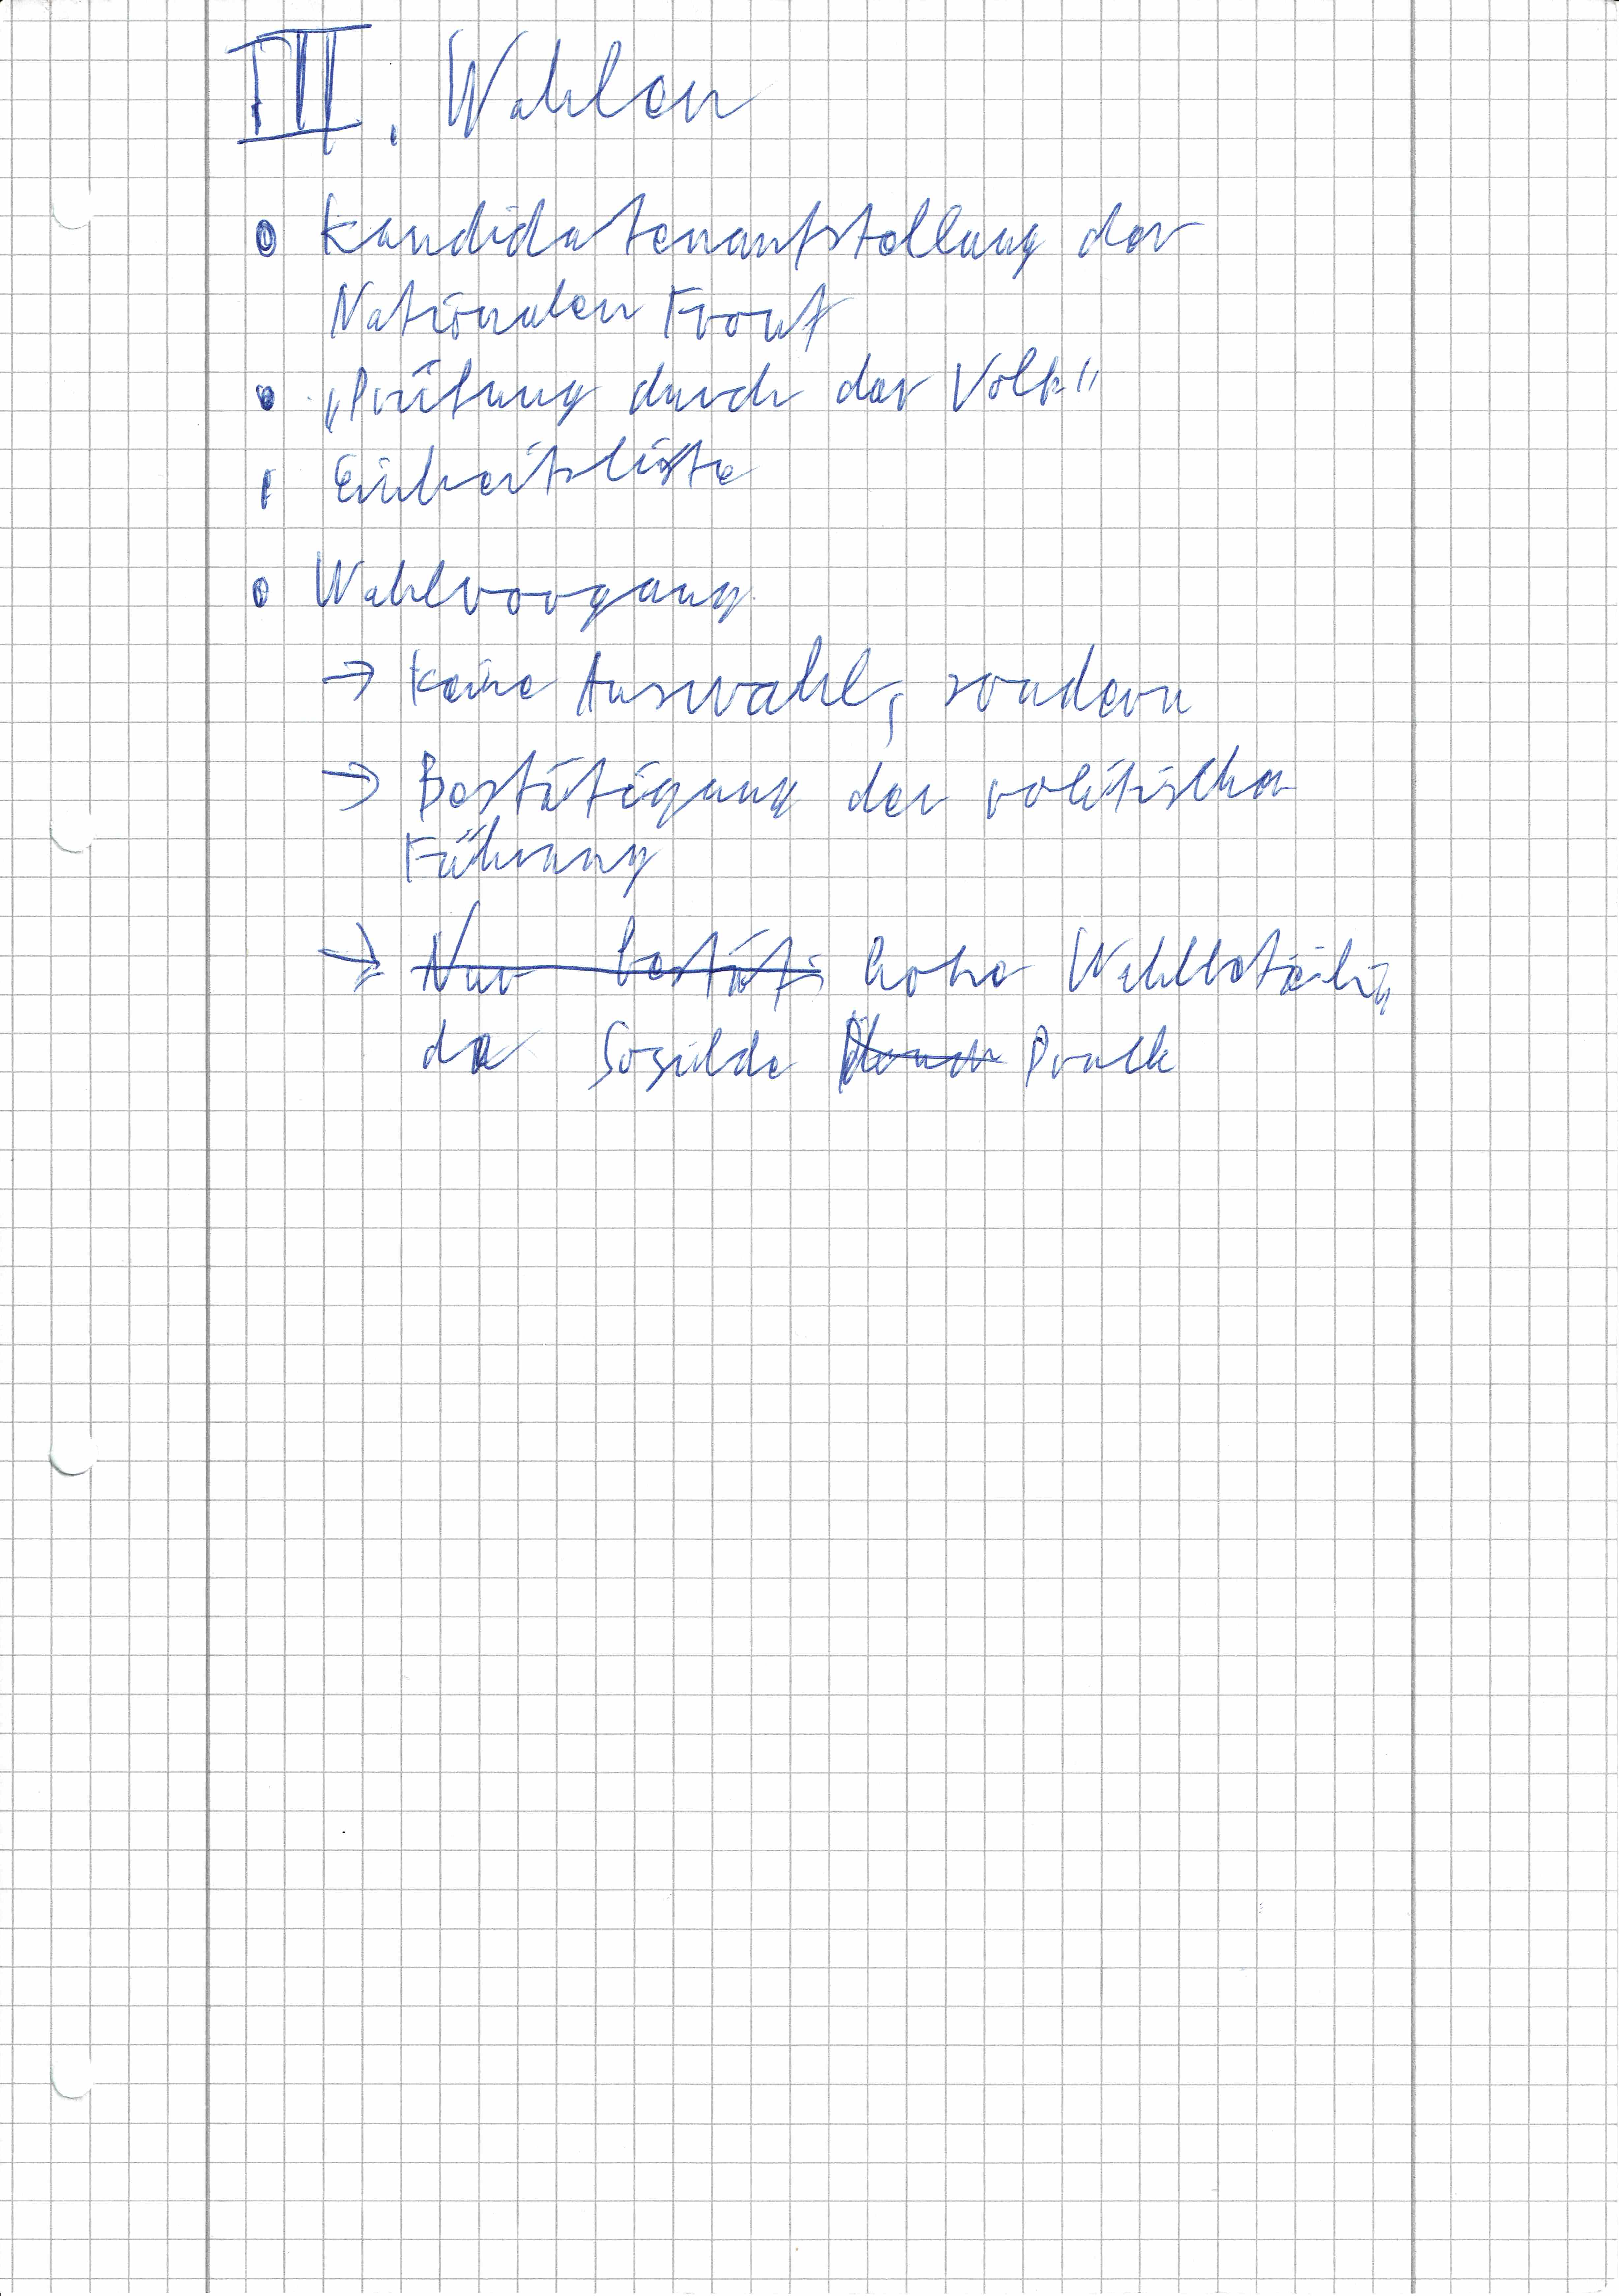 III. Wahlen
• Kandidatenaufstellung der
Nationalen Front
• „Prüfung durch das Volk"
• Einheitsliste
• Wahlvorgang
→ Keine Auswahl, sondern
→ Bestätigung der politischen
Führung
→ Nur bestäti hohe Wahlbeteilig
da